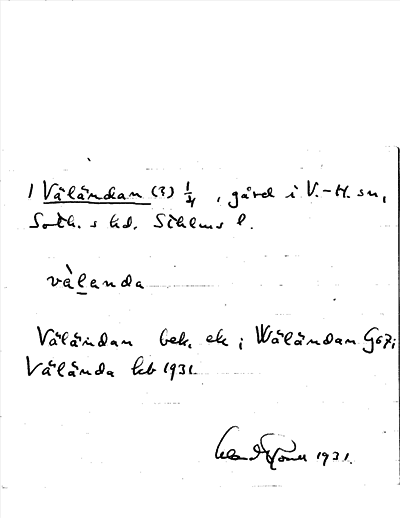 1 Väländan (3) 1/4, gård i V.-H. sn,
Soth.s hd. Sthlms l.
välanda
Väländan bek. ek; Wäländan G67;
Välända kb 1931
1931.